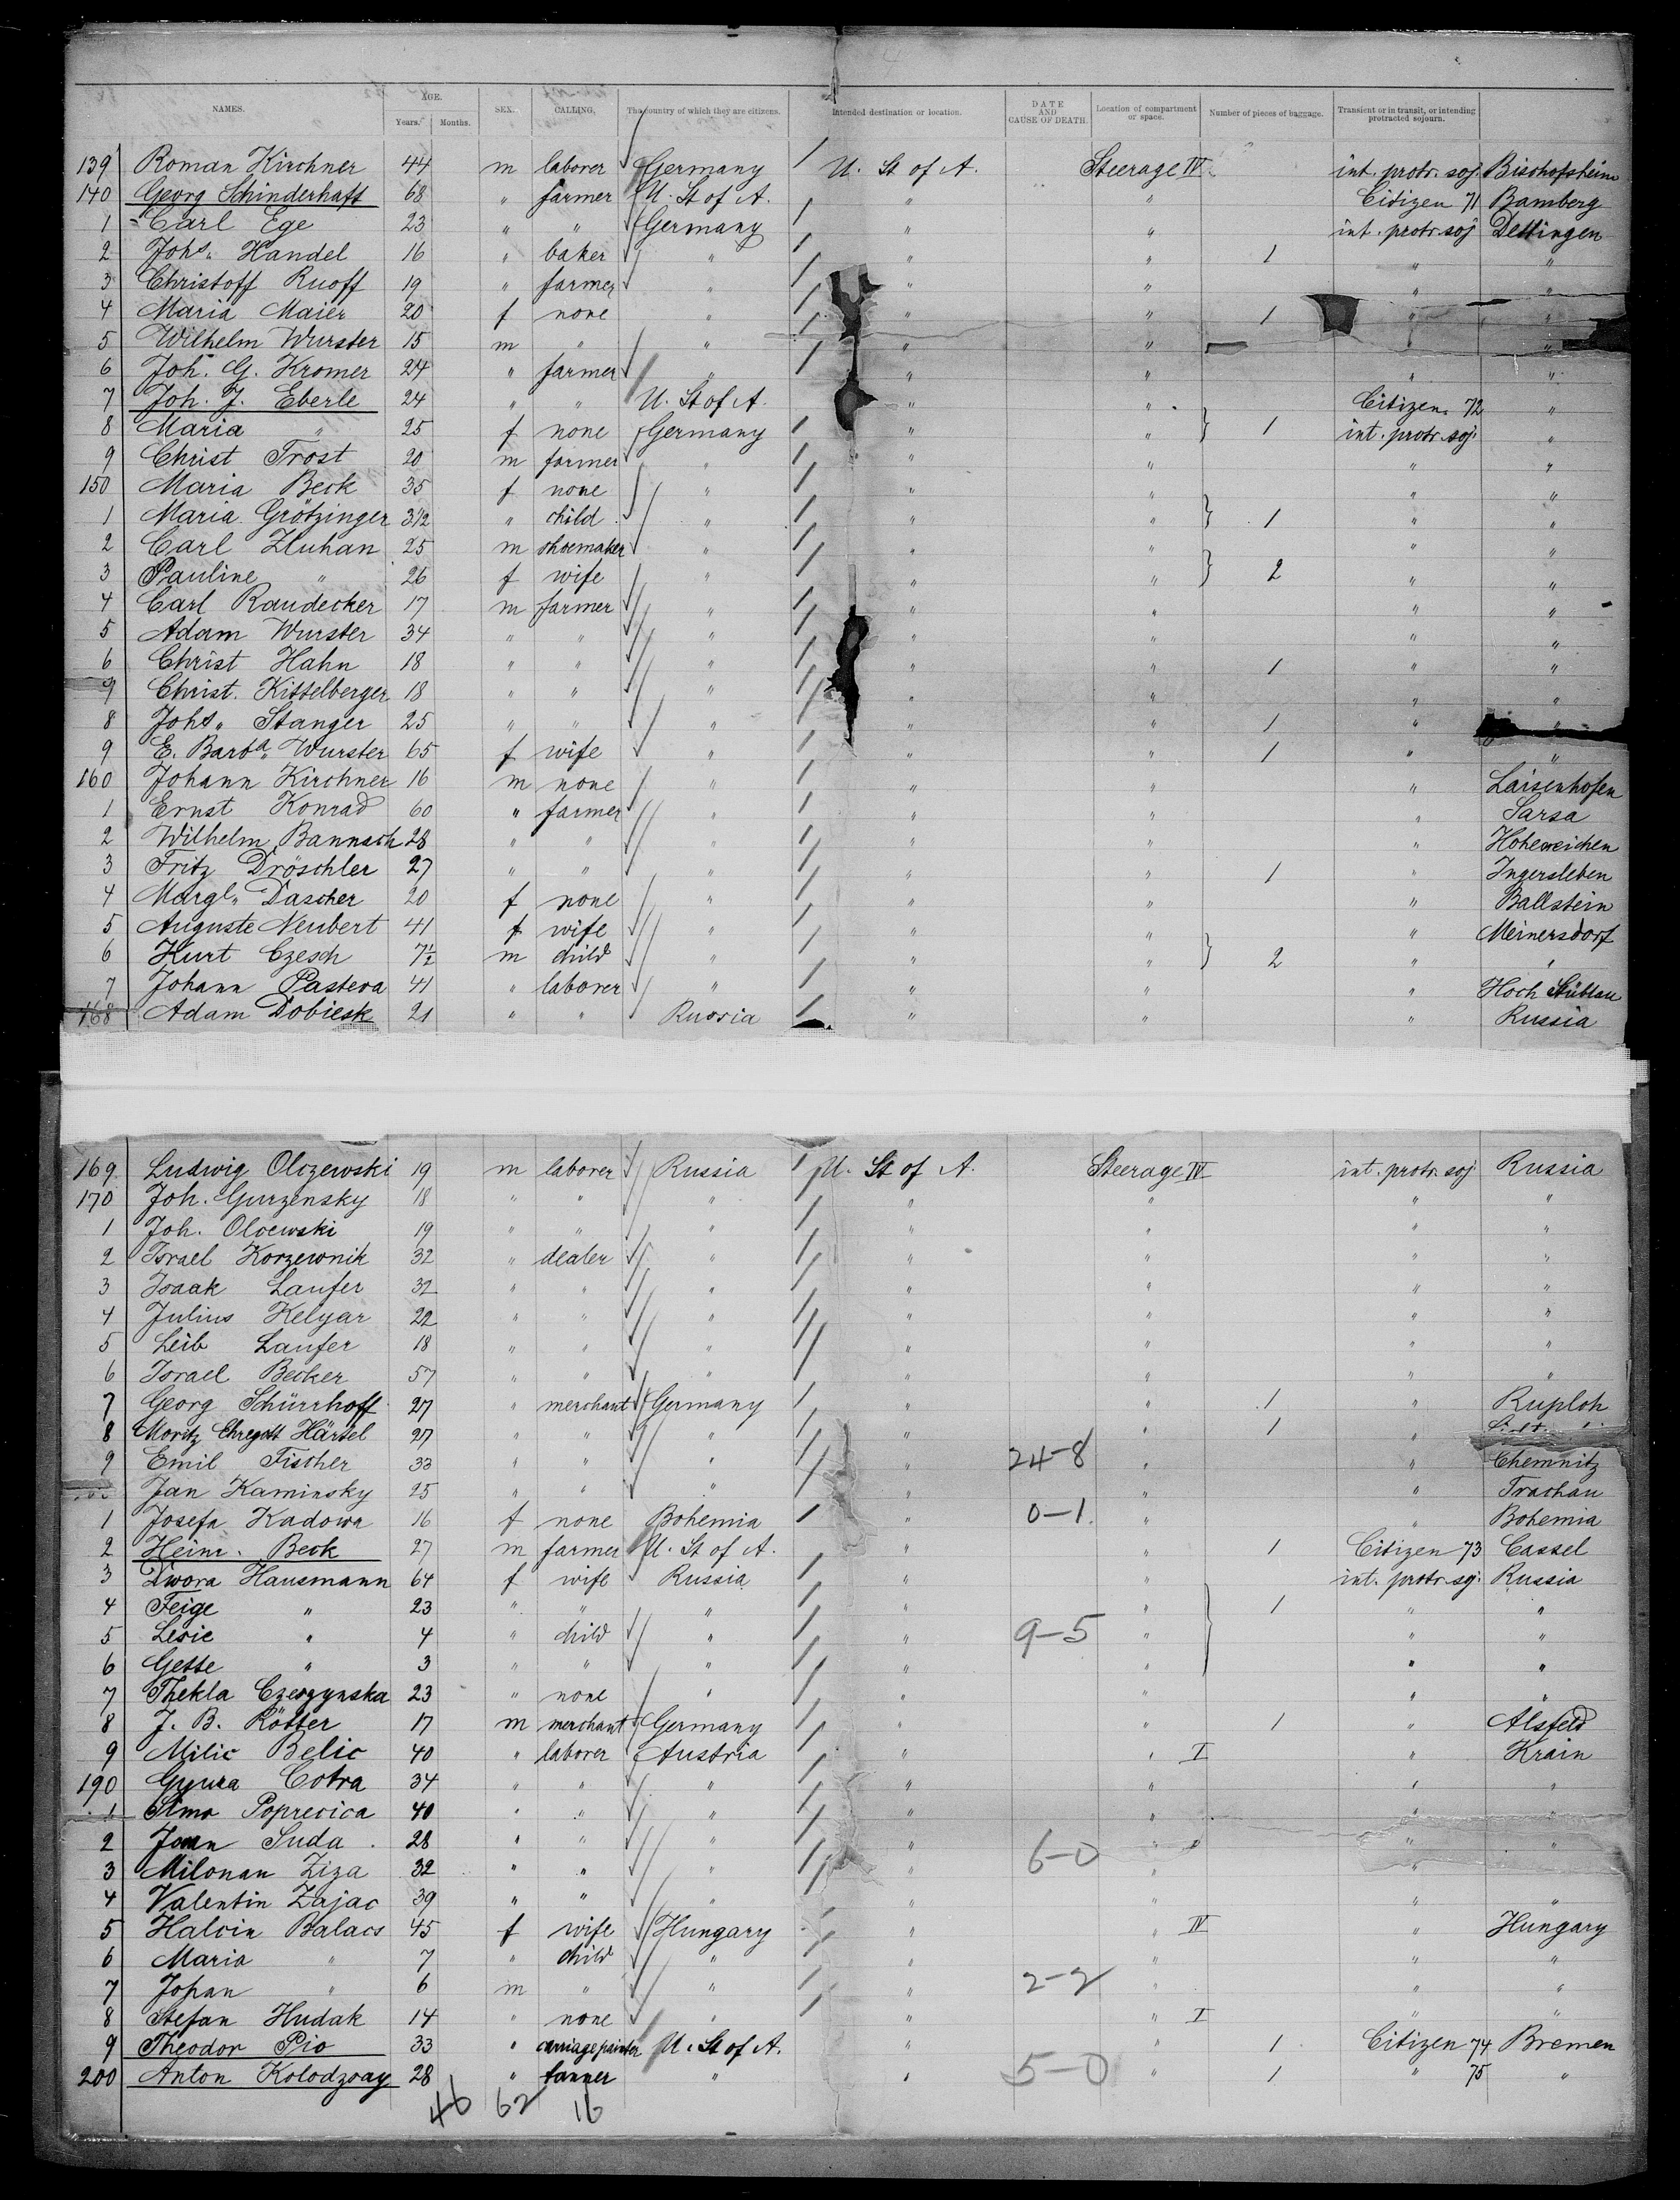 NAMES. AGE. Years. Months. SEX. CALLING. The country of which they are citizens. Intended destination or location. DATE AND CAUSE OF DEATH. Location of compartment or space. Number of pieces of baggage. Transient or in transit, or intending protracted sojourn.
139 Roman Kirchner 44 m laborer Germany U. St of A. Steerage IV int. protr. soj. Bischofsheim
140 Georg Schinderhaft 68 " farmer U. St of A. " " Citizen 71 Bamberg
1 Carl Ege 23 " " Germany " " int. protr. soj Dettingen
2 Johs. Handel 16 " baker " " " 1 " "
3 Christoff Ruoff 19 " farmer " " " " "
4 Maria Maier 20 f none " " " 1 " "
5 Wilhelm Wurster 15 m " " " " "
6 Joh. G. Kromer 24 " farmer " " " " "
7 Joh. J. Eberle 24 " " U. St of A. " " Citizen. 72 "
8 Maria " 25 f none Germany " " } 1 int. protr. soj. "
9 Christ Trost 20 m farmer " " " " "
150 Maria Beck 35 f none " " " " "
1 Maria Grötzinger 3 1/2 " child " " " } 1 " "
2 Carl Zluhan 25 m shoemaker " " " " "
3 Pauline " 26 f wife " " " } 2 " "
4 Carl Raudecker 17 m farmer " " " " "
5 Adam Wurster 34 " " " " " " "
6 Christ Hahn 18 " " " " " 1 " "
9 Christ. Kittelberger 18 " " " " " " "
8 Johs. Stanger 25 " " " " " 1 " "
9 E. Barba. Wurster 65 f wife " " " 1 " "
160 Johann Kirchner 16 m none " " " " Laisenhofen
1 Ernst Konrad 60 " farmer " " " " Sarsa
2 Wilhelm Bannach 28 " " " " " " Hoheneichen
3 Fritz Dröschler 27 " " " " " 1 " Ingersleben
4 Margl. Dascher 20 f none " " " " Ballstein
5 Auguste Neubert 41 f wife " " " " Meinersdorf
6 Kurt Czesch 7 1/2 m child " " " } 2 " "
7 Johann Pasteva 41 " laborer " " " " Hoch Stüblau
168 Adam Dobiesk 21 " " Russia " " " Russia
169 Ludwig Olczewski 19 m laborer Russia U. St of A. Steerage IV int. protr. soj Russia
170 Joh. Gurzensky 18 " " " " " " "
1 Joh. Olcewski 19 " " " " " " "
2 Israel Korzewnik 32 " dealer " " " " "
3 Isaak Laufer 32 " " " " " " "
4 Julius Kelyar 22 " " " " " " "
5 Leib Laufer 18 " " " " " " "
6 Israel Becker 57 " " " " " " "
7 Georg Schürrhoff 27 " merchant Germany " " 1 " Ruploh
8 Moritz Ehregott Härtel 27 " " " " " 1 "
9 Emil Fischer 33 " " " " 24-8 " " Chemnitz
Jan Kaminsky 25 " " " " " " Trachau
1 Josefa Kadowa 16 f none Bohemia " 0-1 " " Bohemia
2 Heinr. Beck 27 m farmer U. St of A. " " 1 Citizen 73 Cassel
3 Dwora Hausmann 64 f wife Russia " " int. protr. soj. Russia
4 Feige " 23 " " " " " } 1 " "
5 Lesie " 4 " child " " 9-5 " " "
6 Gette " 3 " " " " " " "
7 Thekla Czeszynska 23 " none " " " " "
8 J. B. Rötter 17 m merchant Germany " " 1 " Alsfeld
9 Milic Belic 40 " laborer Austria " " I " Krain
190 Gyura Cotra 34 " " " " " " "
1 Simo Poprecica 40 " " " " " " "
2 Joan Suda 28 " " " " " " " "
3 Milonan Ziza 32 " " " " 6-0 " "
4 Valentin Zajac 39 " " " " " " "
5 Halcin Balacs 45 f wife Hungary " " IV " Hungary
6 Maria " 7 " child " " " " "
7 Johan " 6 m " " " 2-2 " " "
8 Stefan Hudak 14 " none " " " I " "
9 Theodor Pio 33 " carriagepainter U. St of A. " " 1 Citizen 74 Bremen
200 Anton Kolodzoay 28 " tanner " " 5-0 " 1 " 75 "
46 62 16